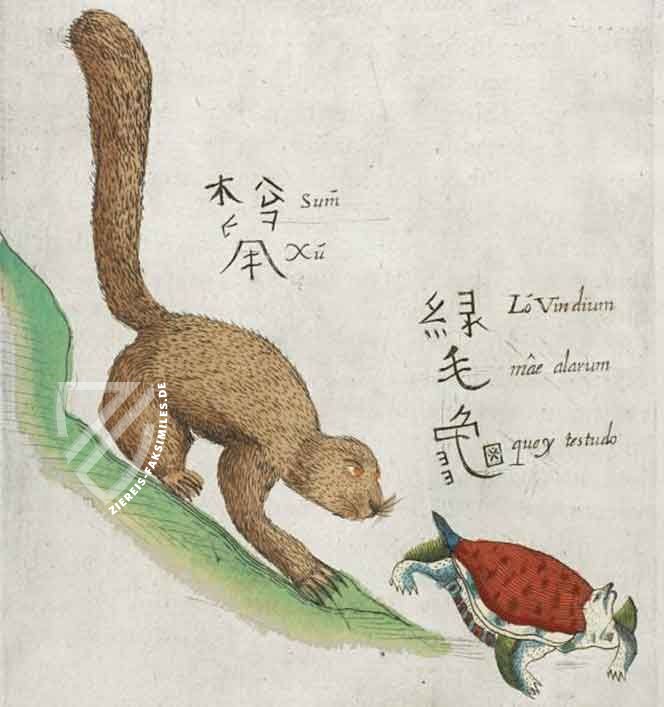 松 Sum̄
鼠 Xū
綠 Ló Viridium
毛 mâe alarum
龜 quey testudo
ZIEREIS-FAKSIMILES.DE